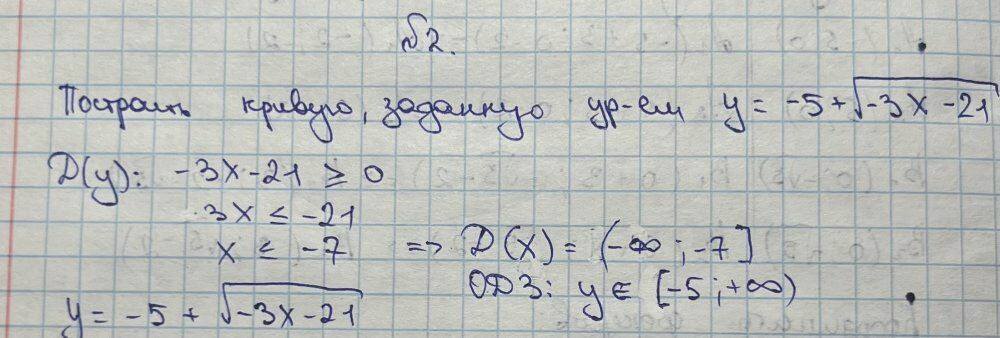 №2.
Построить кривую, заданную ур-ем y = -5 + √(-3x - 21)
D(y): -3x - 21 ≥ 0
3x ≤ -21
x ≤ -7 => D(x) = (-∞; -7]
ОДЗ: y ∈ [-5; +∞)
y = -5 + √(-3x - 21)